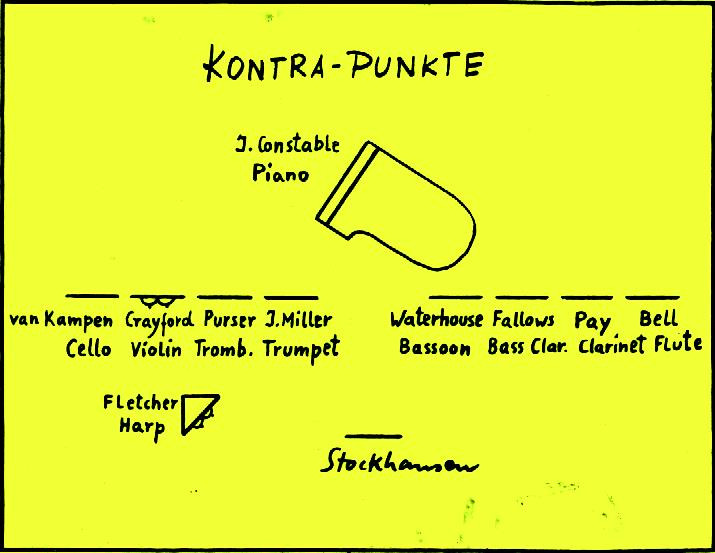 KONTRA-PUNKTE
J. Constable
Piano
van Kampen Crayford Purser J. Miller Waterhouse Fallows Pay Bell
Cello Violin Tromb. Trumpet Bassoon Bass Clar. Clarinet Flute
Fletcher
Harp
Stockhausen